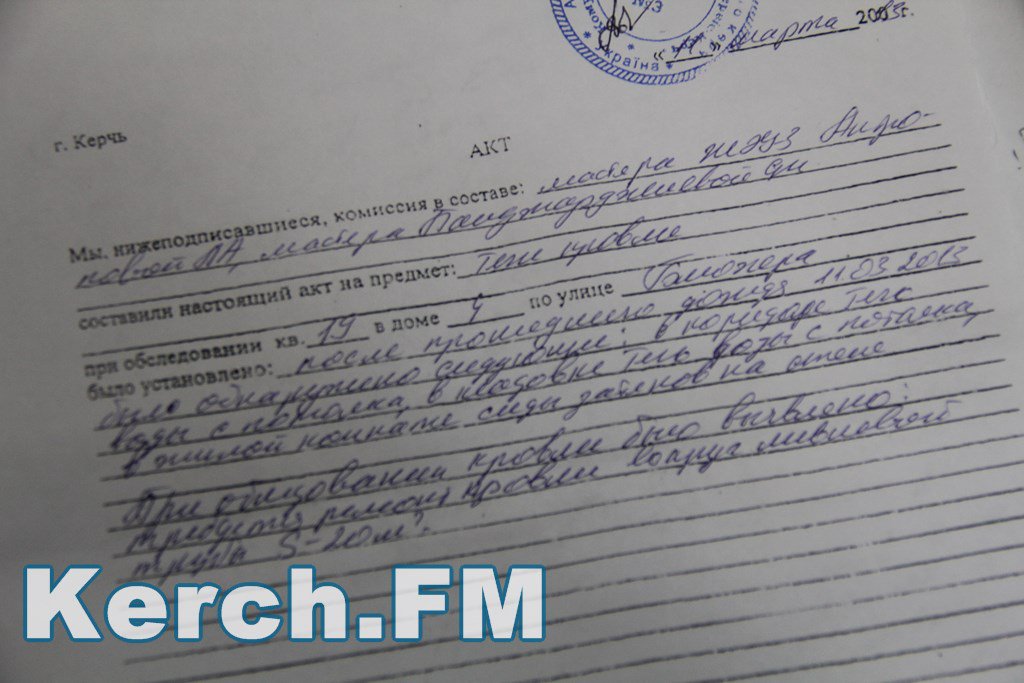 Україна
марта 2013г.
г. Керчь
АКТ
Мы, нижеподписавшиеся, комиссия в составе: мастера
мастера
составили настоящий акт на предмет: течи кровли
при обследовании кв. 19 в доме 4 по улице
было установлено: после прошедшего дождя 11.03.2013
было обнаружено следующие: в коридоре течь
воды с потолка, в кладовке течь воды с потолка,
в жилой комнате следы затеков на стене
При обследовании кровли было выявлено:
требуется ремонт кровли вокруг ливневой
трубы S-20м²
Kerch.FM